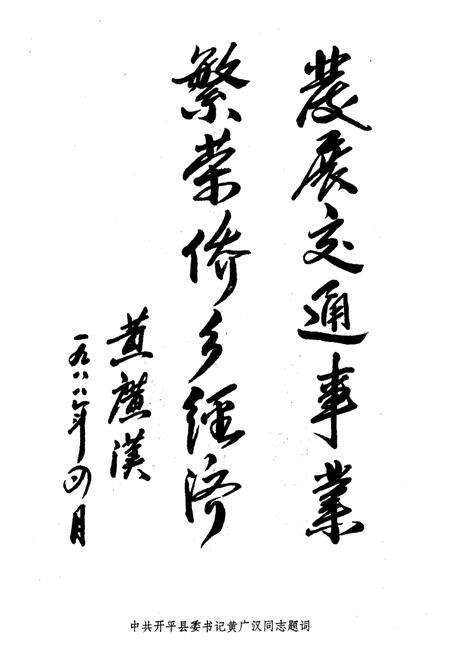 發展交通事業
繁荣侨乡經济
黄廣漢
一九八八年四月
中共开平县委书记黄广汉同志题词